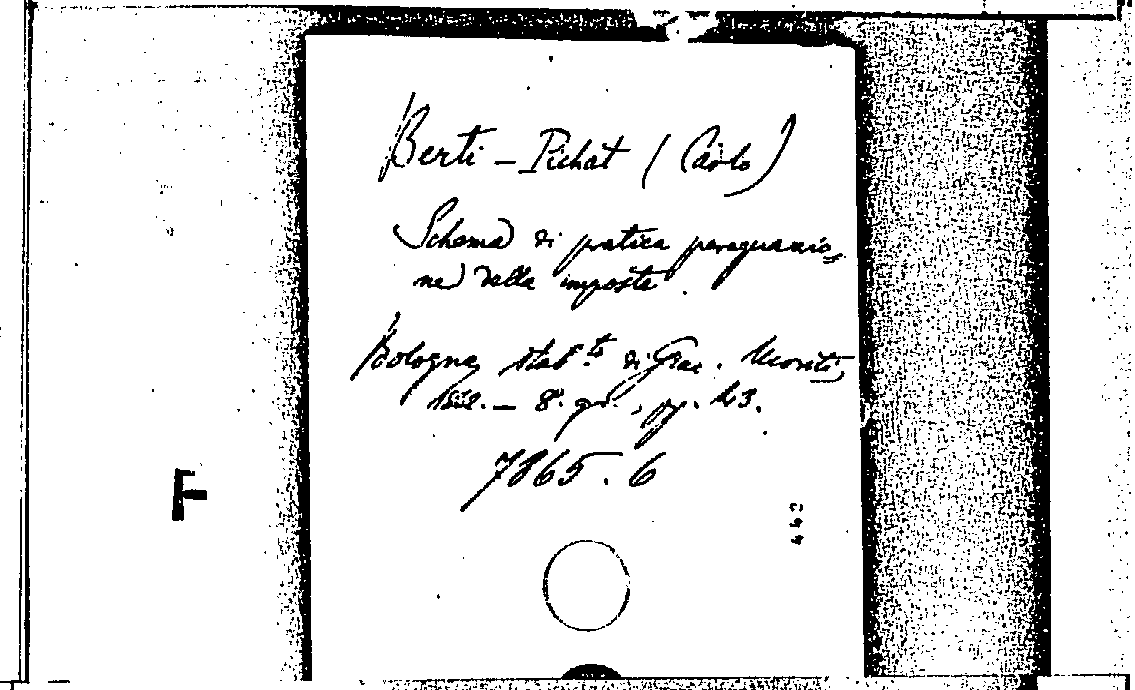 Berti-Pichat (Carlo)
Schema di pratica perequazio-
ne della imposta.
Bologna, Stab.to di Giac. Monti,
8.º gr., pp. 43.
7865.6
F